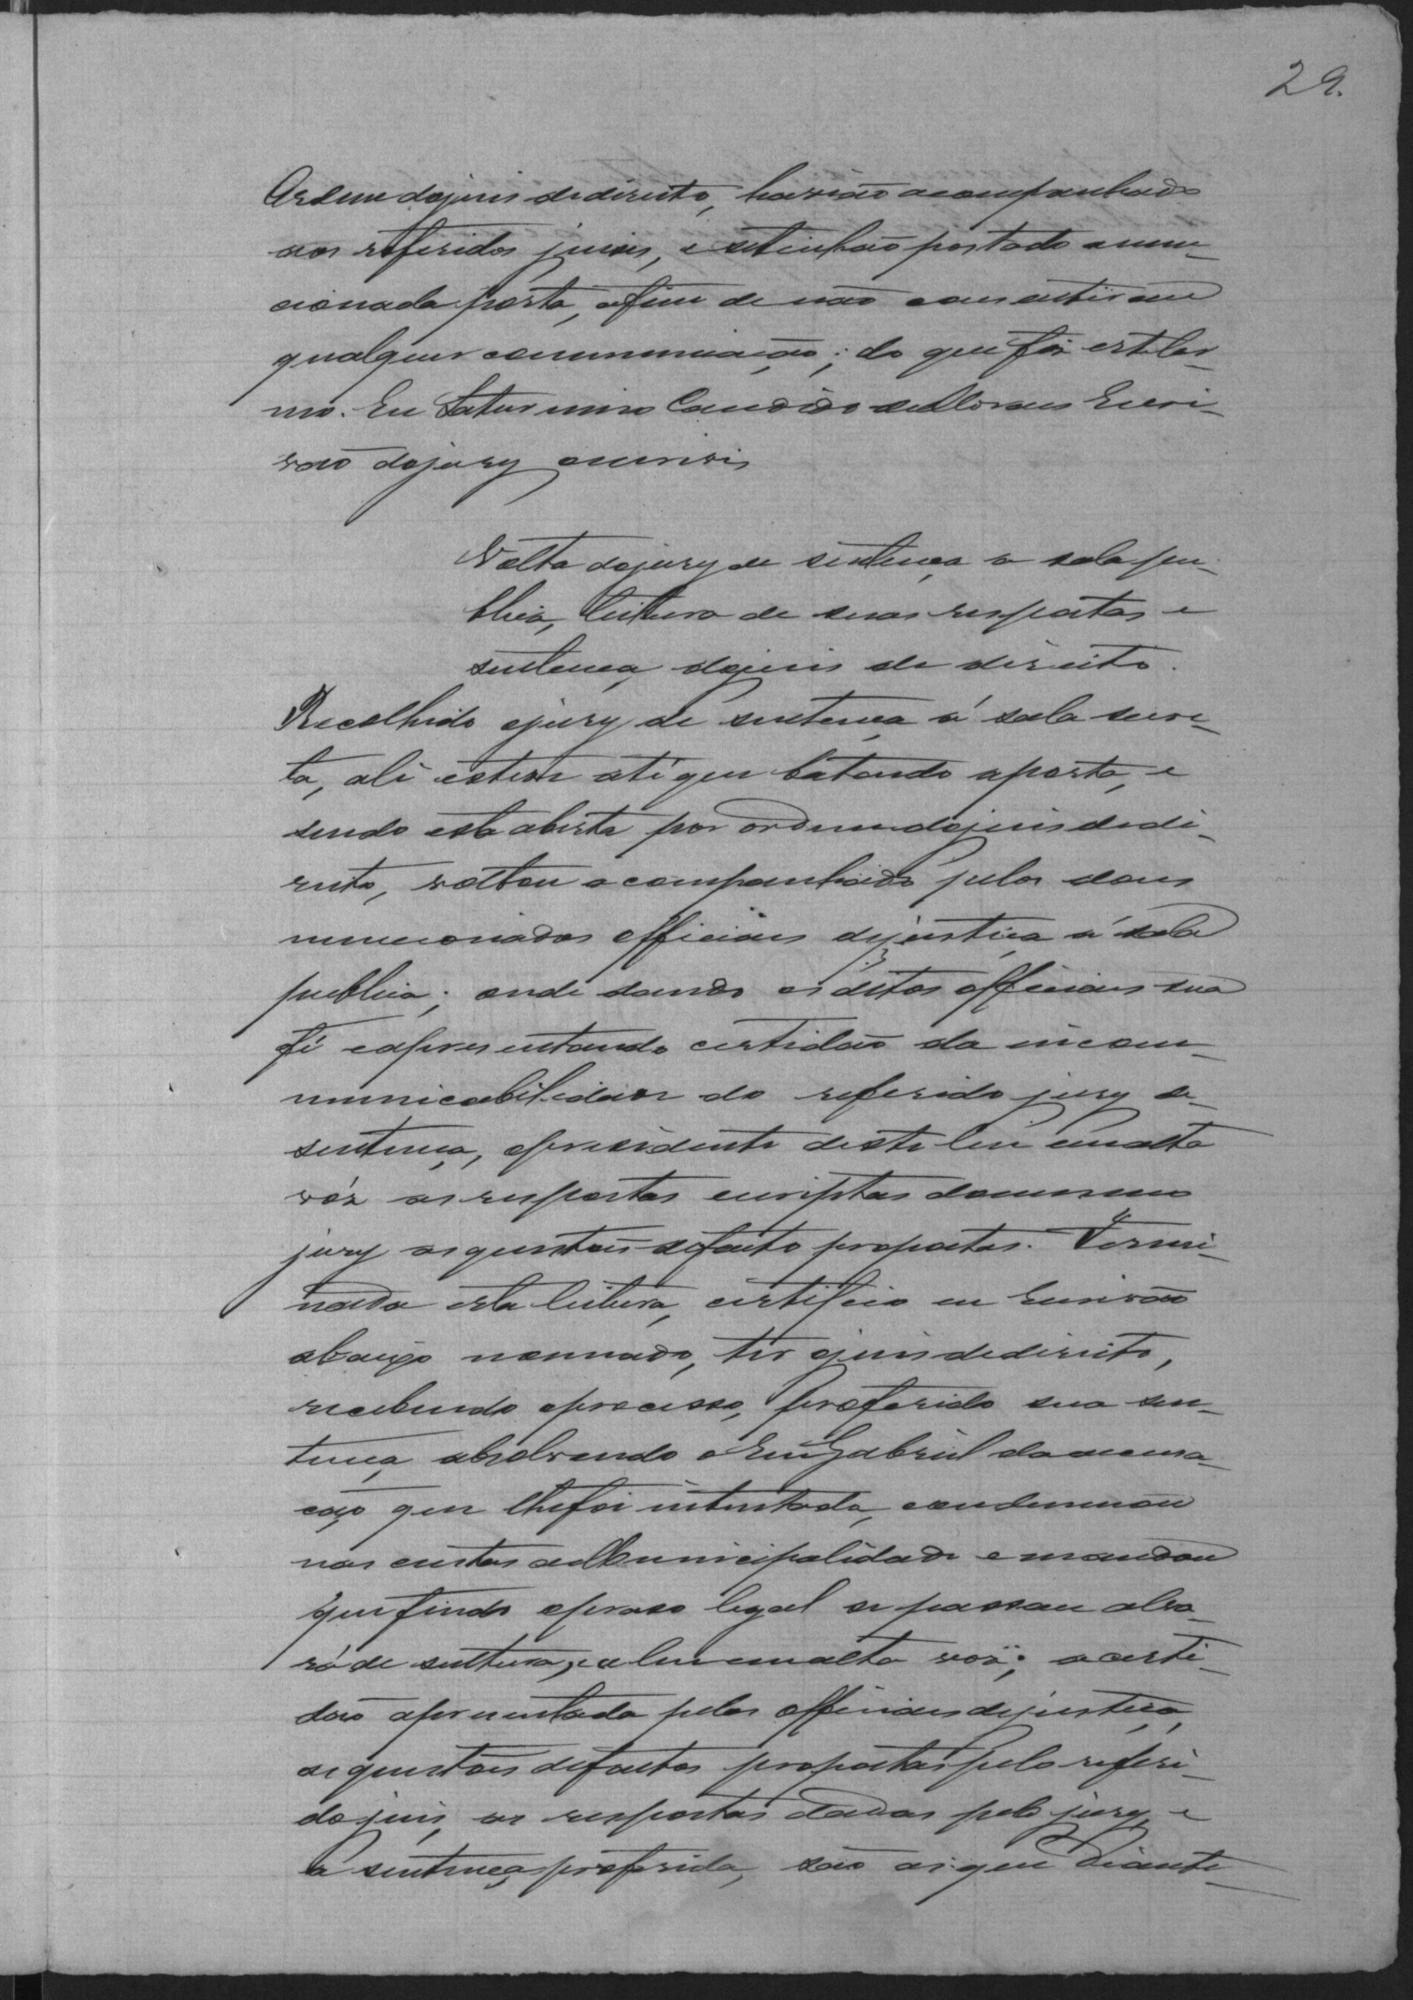 29.
Ordem do juis de direito, havião acompanhado
aos referidos juises, e se tinhão postado a men-
cionada porta, afim de não consentirem
qualquer communicação; do que fiz este ter-
mo. Eu Saturnino Candido de Moraes Escri-
vão do jury escrivi
Volta do jury de sentença a sala pu-
blica, leitura de suas respostas e
sentença do juis de direito.
Recolhido o jury de sentença á sala secre-
ta, ali esteve até que batendo a porta, e
sendo esta aberta por ordem do juis de di-
reito, voltou acompanhado pelos dous
mencionados officiaes de justiça á sala
publica; onde dando os ditos officiaes sua
fé e apresentando certidão da incom-
municabilidade do referido jury de
sentença, o presidente deste leu em alta
vóz as respostas escriptas do mesmo
jury as questões de facto propostas. Termi-
nada esta leitura, certifico eu Escrivão
abaixo nomeado, ter o juis de direito,
recebendo o processo, proferido sua sen-
tença, absolvendo o Réu Gabriel da accusa-
ção que lhe foi intentada, condemnou
nas custas a Municipalidade e mandou
que findo o praso legal se passasse alva-
rá de soltura, e a leu em alta voz; a certi-
dão apresentada pelos officiaes de justiça,
as questões de factos propostas pelo referi-
do juis, as respostas dadas pelo jury, e
a sentença proferida, são as que diante